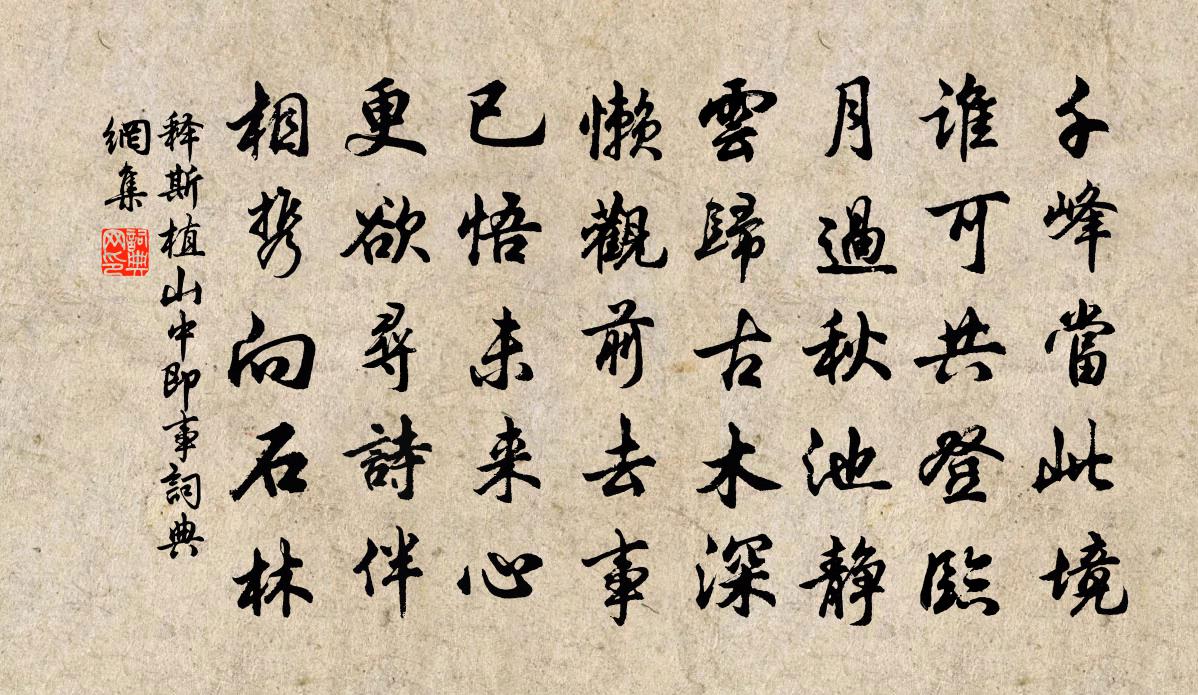 千峰當此境
誰可共登臨
月過秋池静
雲歸古木深
懶觀前去事
已悟未来心
更欲尋詩伴
相携向石林
释斯植山中即事詞典
網集
詞典
网印